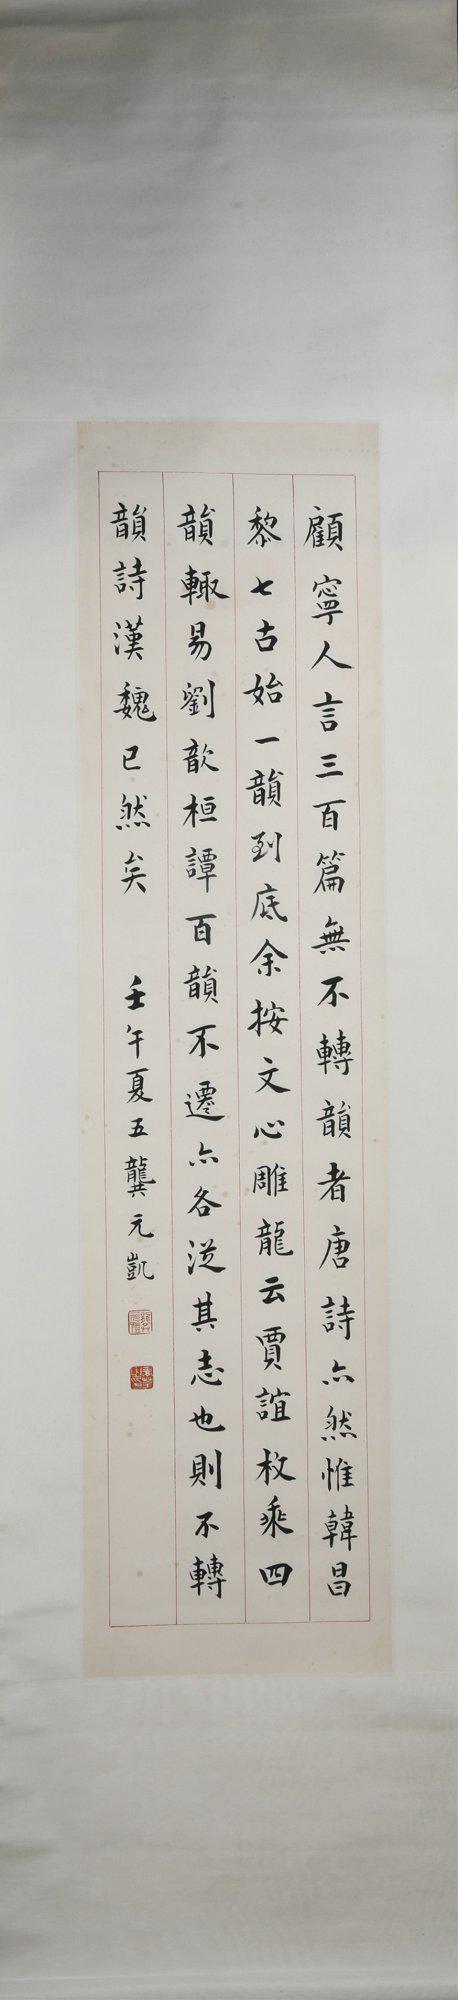 顧寧人言三百篇無不轉韻者唐詩亦然惟韓昌
黎七古始一韻到底余按文心雕龍云賈誼枚乘四
韻輒易劉歆桓譚百韻不遷亦各從其志也則不轉
韻詩漢魏已然矣
壬午夏五龔元凱